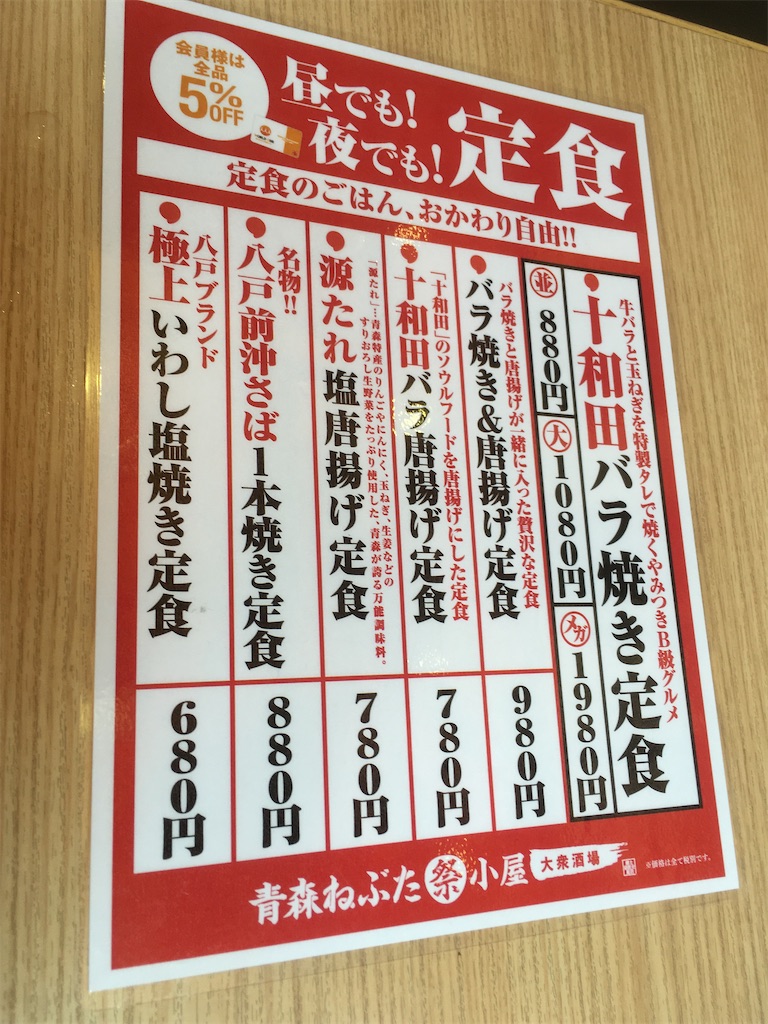 会員様は
全品
5%
OFF
昼でも!
夜でも!
定食
定食のごはん、おかわり自由!!
牛バラと玉ねぎを特製タレで焼くやみつきB級グルメ
十和田バラ焼き定食
並 880円
大 1080円
メガ 1980円
バラ焼きと唐揚げが一緒に入った贅沢な定食
バラ焼き&唐揚げ定食
980円
「十和田」のソウルフードを唐揚げにした定食
十和田バラ唐揚げ定食
780円
「源たれ」…青森特産のりんごやにんにく、玉ねぎ、生姜などの
すりおろし生野菜をたっぷり使用した、青森が誇る万能調味料。
源たれ塩唐揚げ定食
780円
名物!!
八戸前沖さば1本焼き定食
880円
八戸ブランド
極上いわし塩焼き定食
680円
青森ねぶた祭小屋
大衆酒場
※価格は全て税別です。